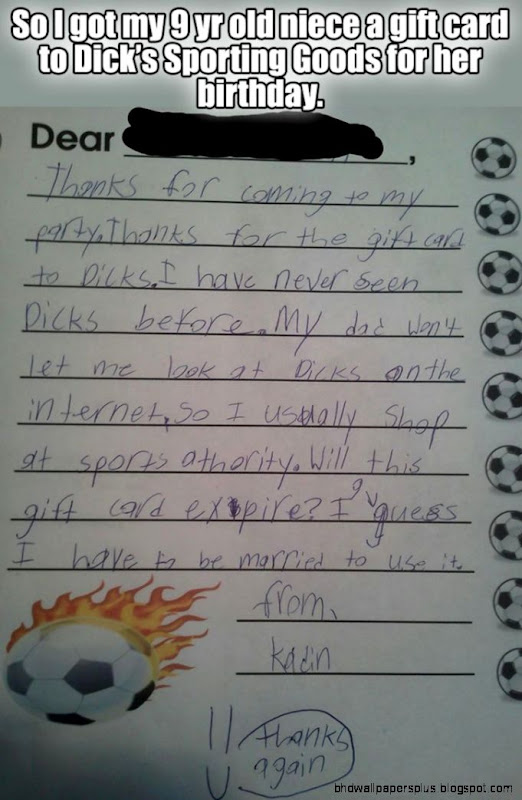 So I got my 9 yr old niece a gift card
to Dick's Sporting Goods for her
birthday.
Dear ,
Thanks for coming to my
party. Thanks for the gift card
to Dicks. I have never seen
Dicks before. My dad won't
let me look at Dicks on the
internet, so I usually shop
at sports athority. Will this
gift card expire? I guess
I have to be married to use it.
from,
kadin
thanks
again
bhdwallpapersplus.blogspot.com